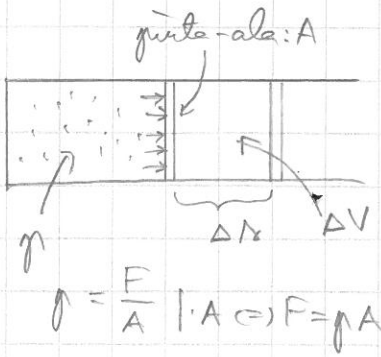 pinta-ala: A
p
Δs
ΔV
p = F/A | ·A ⇔ F = pA